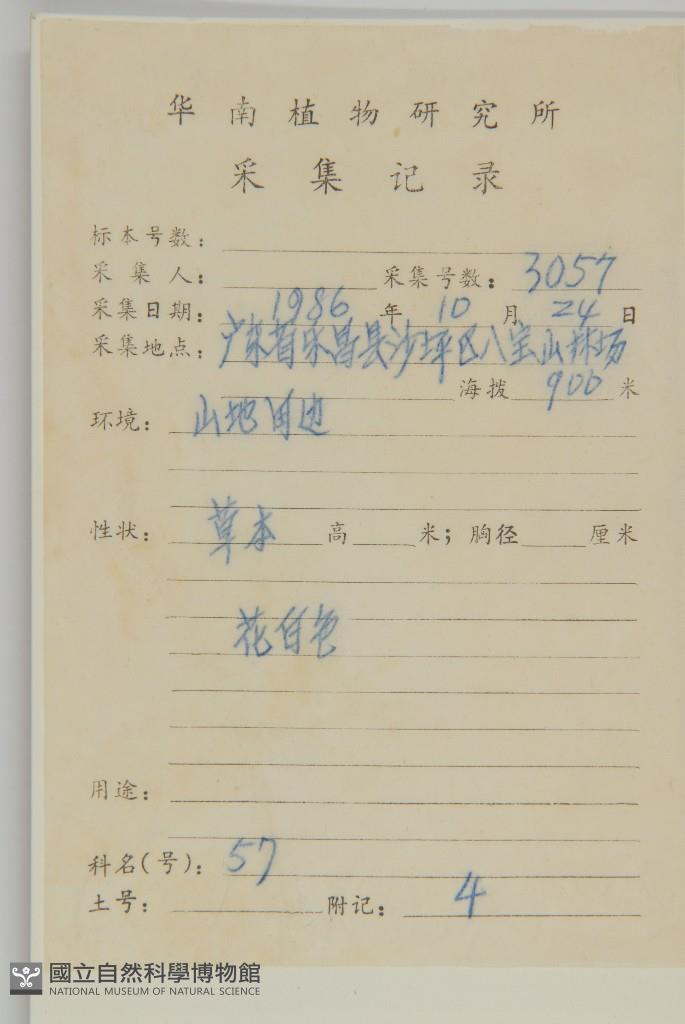 华南植物研究所
采集记录
标本号数：
采集人： 采集号数：3057
采集日期：1986年10月24日
采集地点：广东省乐昌县沙坪区八宝山林场
海拨900米
环境：山地田边
性状：草本 高 米；胸径 厘米
花白色
用途：
科名(号)：57
土号： 附记：4
國立自然科學博物館
NATIONAL MUSEUM OF NATURAL SCIENCE